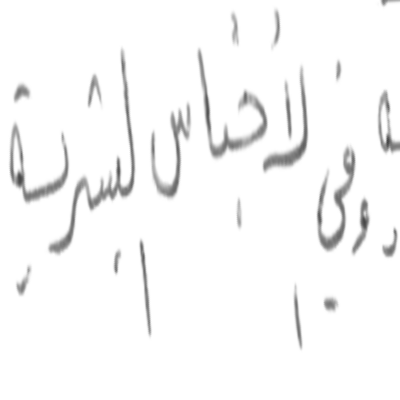 وفي الأجناس البشرية